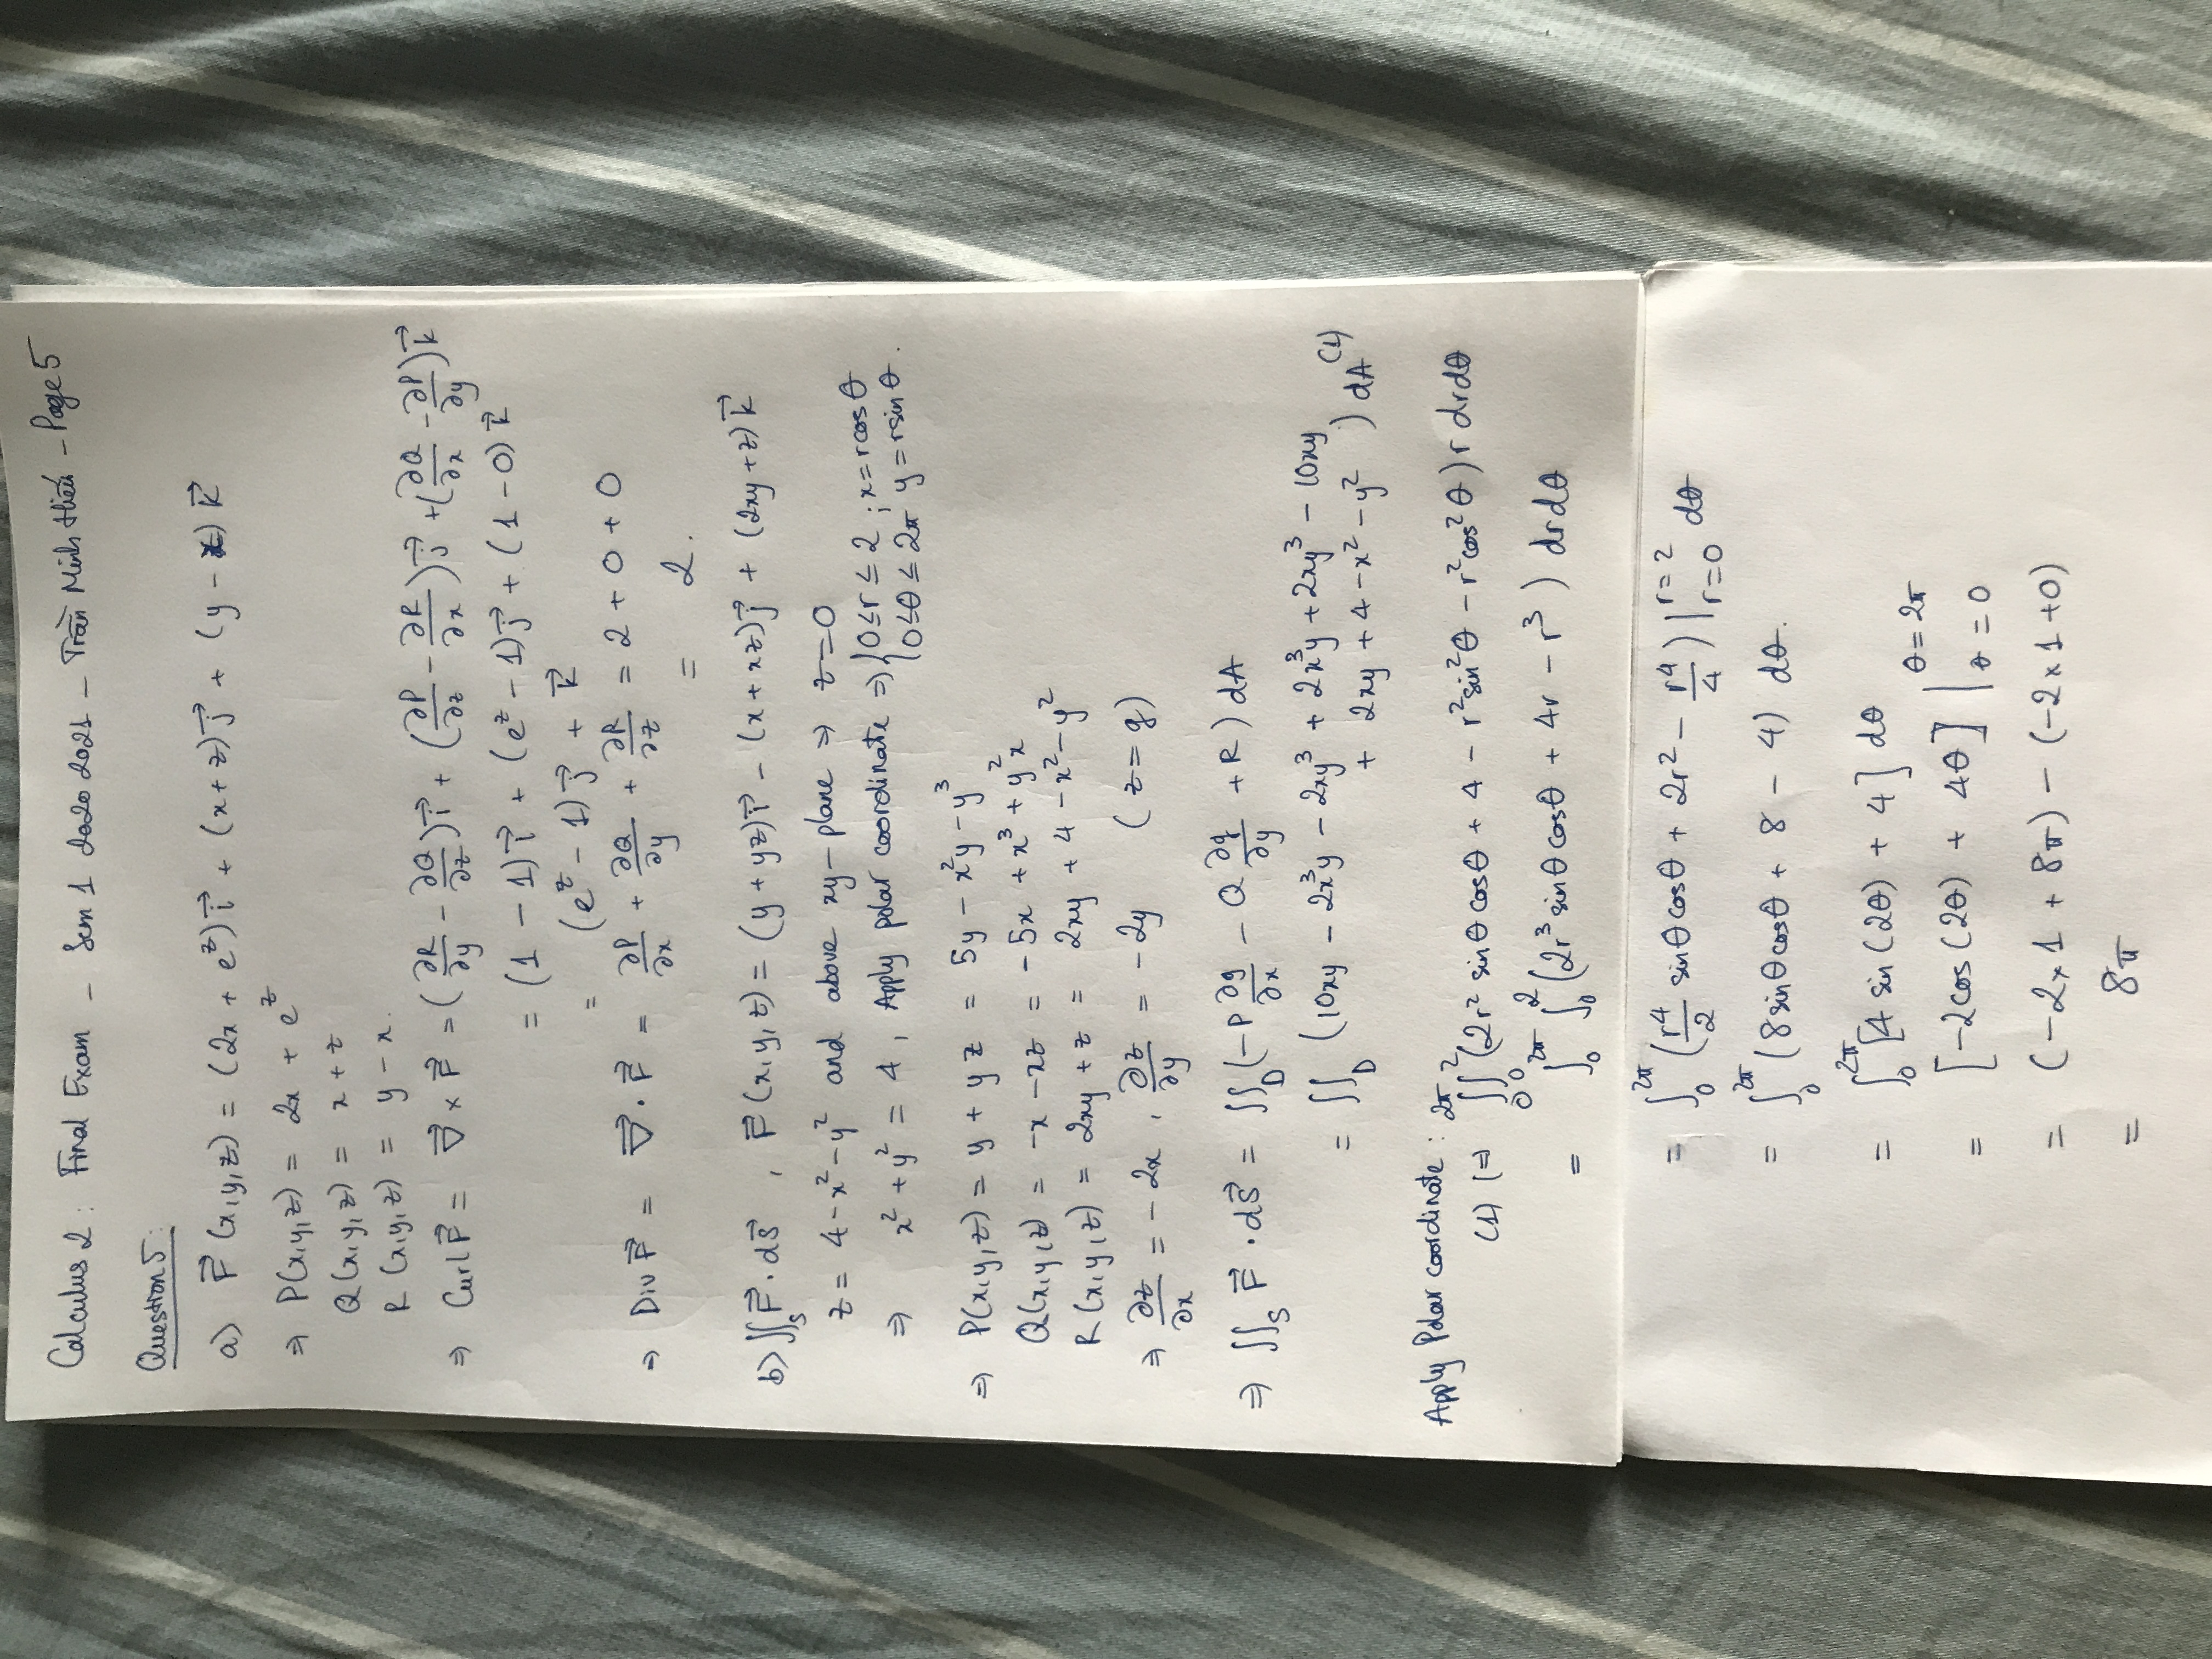 Calculus 2: Final Exam – Sem 1 2020 2021 – Trần Minh Hiếu – Page 5
Question 5:
a) F⃗ (x,y,z) = (2x + e^z) i⃗ + (x + z) j⃗ + (y – x) k⃗
⇒ P(x,y,z) = 2x + e^z
Q(x,y,z) = x + z
R(x,y,z) = y – x.
⇒ Curl F⃗ = ∇⃗ × F⃗ = (∂R/∂y – ∂Q/∂z) i⃗ + (∂P/∂z – ∂R/∂x) j⃗ + (∂Q/∂x – ∂P/∂y) k⃗
= (1 – 1) i⃗ + (e^z – 1) j⃗ + (1 – 0) k⃗
= (e^z – 1) j⃗ + k⃗
⇒ Div F⃗ = ∇⃗ · F⃗ = ∂P/∂x + ∂Q/∂y + ∂R/∂z = 2 + 0 + 0
= 2.
b) ∬_S F⃗ · dS⃗ , F⃗ (x,y,z) = (y + yz) i⃗ – (x + xz) j⃗ + (2xy + z) k⃗
z = 4 – x² – y² and above xy–plane ⇒ z = 0
⇒ x² + y² = 4, Apply polar coordinate ⇒ { 0 ≤ r ≤ 2 ; x = r cos θ
0 ≤ θ ≤ 2π y = r sin θ.
⇒ P(x,y,z) = y + yz = 5y – x²y – y³
Q(x,y,z) = –x – xz = –5x + x³ + y²x
R(x,y,z) = 2xy + z = 2xy + 4 – x² – y²
⇒ ∂z/∂x = –2x , ∂z/∂y = –2y (z = g)
⇒ ∬_S F⃗ · dS⃗ = ∬_D (–P ∂g/∂x – Q ∂g/∂y + R) dA
= ∬_D (10xy – 2x³y – 2xy³ + 2x³y + 2xy³ – 10xy
+ 2xy + 4 – x² – y²) dA (1)
Apply Polar coordinate:
(1) ⇔ ∫_0^2π ∫_0^2 (2r² sin θ cos θ + 4 – r² sin² θ – r² cos² θ) r dr dθ
= ∫_0^2π ∫_0^2 (2r³ sin θ cos θ + 4r – r³) dr dθ
= ∫_0^2π (r⁴/2 sin θ cos θ + 2r² – r⁴/4) |_{r=0}^{r=2} dθ
= ∫_0^2π (8 sin θ cos θ + 8 – 4) dθ.
= ∫_0^2π [4 sin (2θ) + 4] dθ
= [–2 cos (2θ) + 4θ] |_{θ=0}^{θ=2π}
= (–2 × 1 + 8π) – (–2 × 1 + 0)
= 8π